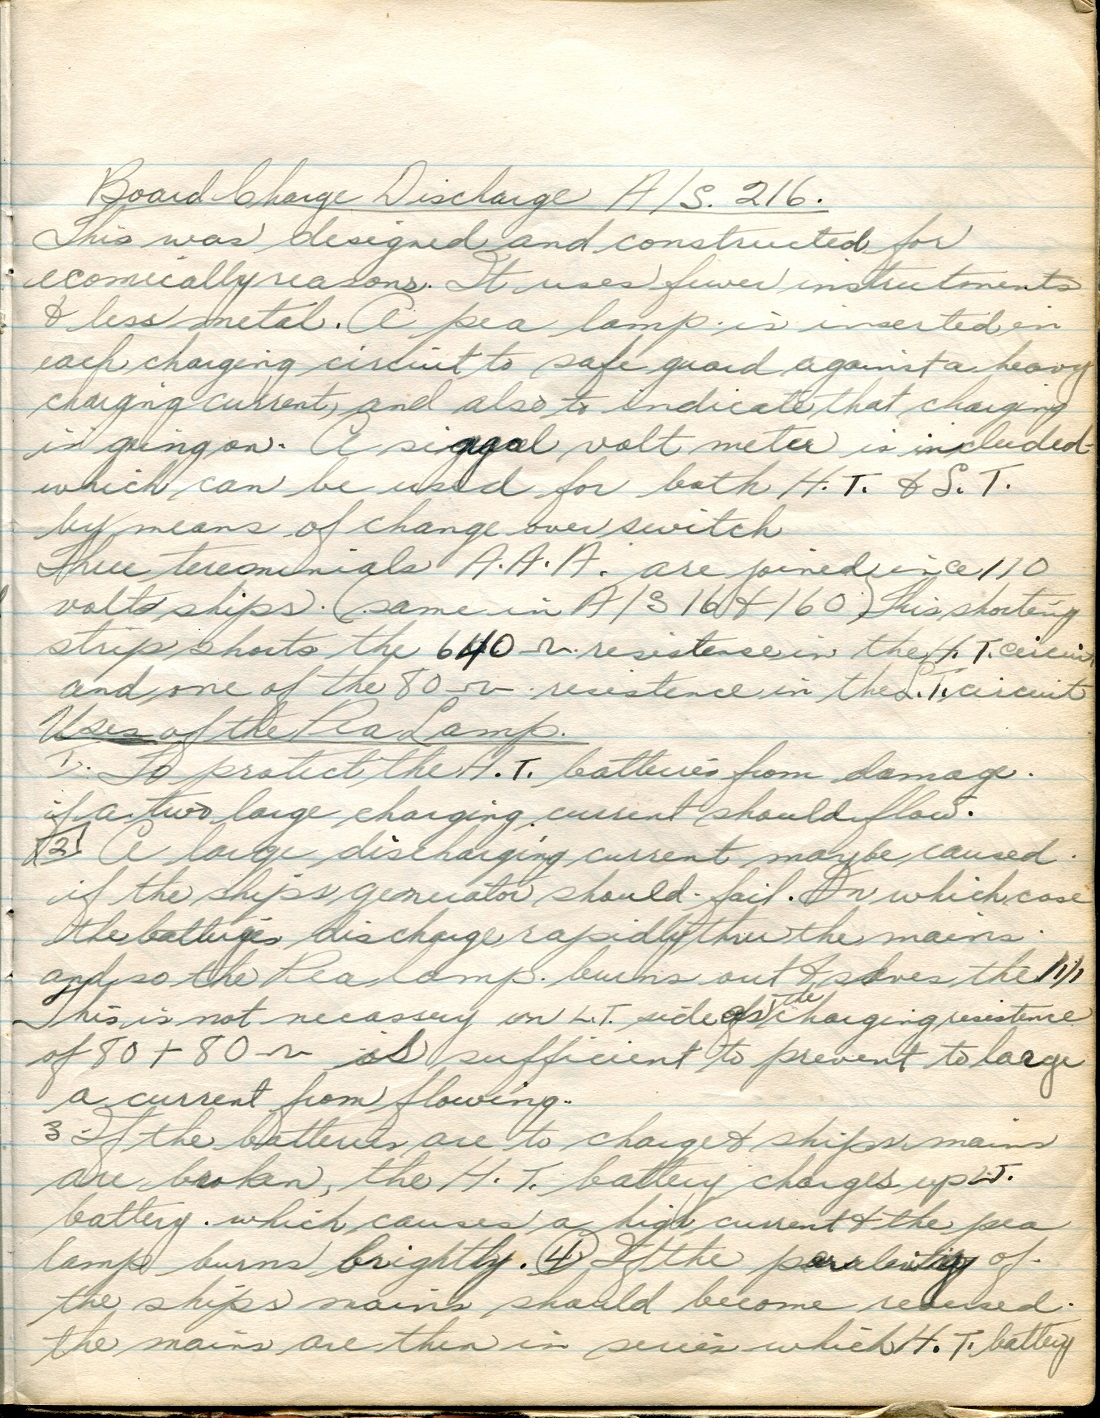 Board Charge Discharge A/S. 216.
This was designed and constructed for
ecomically reasons. It uses fewer instrutments
& less metal. A pea lamp is inserted in
each charging circuit to safe guard against a heavy
charging current, and also to indicate that charging
is going on. A volt meter is included
which can be used for both H.T. &
by means of change over switch
Three A.A.A. are joined in a 110
volts ships. (same in A/S 16 & 160) This shorting
strip shorts the 640 resistence in the H.T. circuit
and one of the 80 resistence in the L.T. circuit
Uses of the Pea Lamp.
1. To protect the H.T. batteries from damage.
if a two large charging current should flow.
2 A large discharging current maybe caused.
if the ships generator should fail. In which case
the batteries discharge rapidly thru the mains.
and so the Pea lamp. burns out & saves the
This is not necassery on L.T. side as the charging resistence
of 80 + 80 is sufficient to prevent to large
a current from flowing.
3. If the batteries are to charge & ships mains
are broken, the H.T. battery charges up L.T.
battery. which causes a high current & the pea
lamp burns brightly. 4 If the of
the ships mains should become reversed.
the mains are then in series which H.T. battery